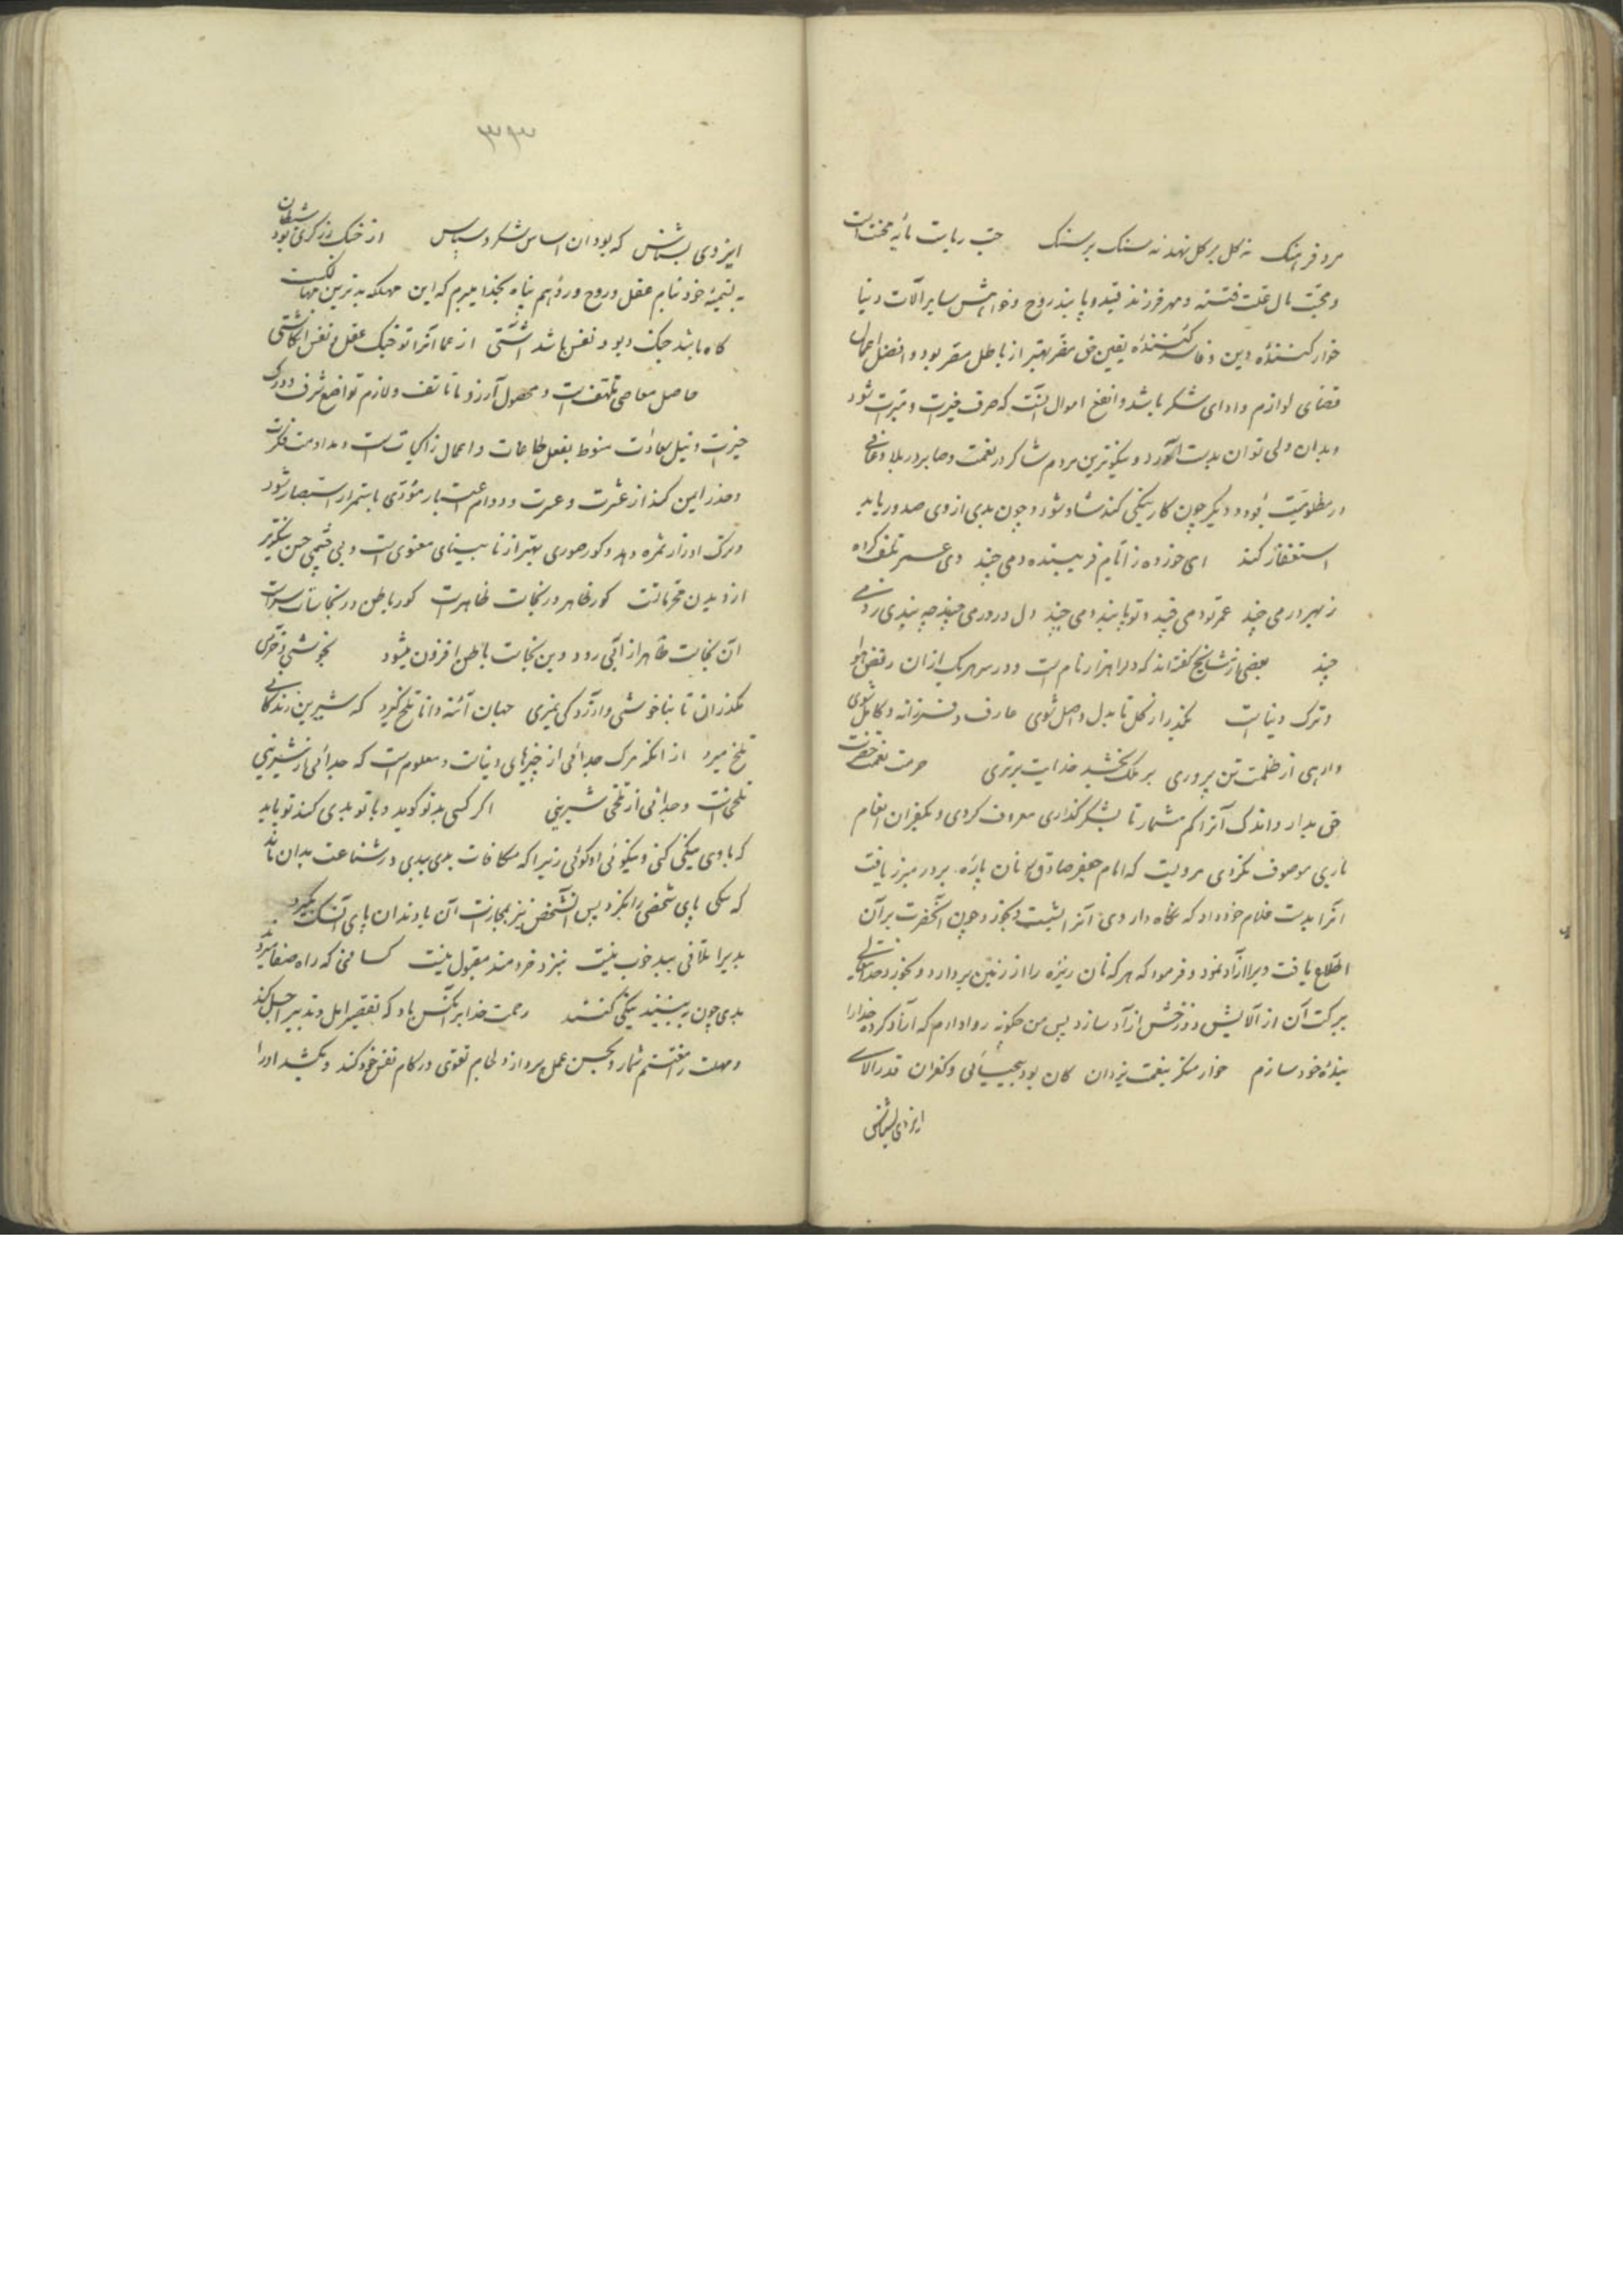 مرد فرهنک نه کل بر کل نهد نه سنک بر سنک حبّ ریاست مایهٔ محنت است
و محبّت مال علت فتنه و مهر فرزند قید و پابند روح و خواهش سایر آلات دنیا
خوار کنندهٔ دین و فاسد کنندهٔ یقین حق مضر بهتر از باطل مسر بود و افضل اعمال
قضای لوازم و ادای شکر باشد و انفع اموال آنست که صرف خیرات و مبرات شود
و بدان ولی توان بدست آورد و نیکوترین مردم شاکر در نعمت و صابر در بلا و عافی
در مظلومیّت بود و دیکر چون کار نیکی کند شاد شود و چون بدی از وی صدور یابد
استغفار کند ای خورده ز ایام فریبنده دمی چند وی عمر تلف کرده
ز بهر درمی چند عمر تو دمی چند و تو پابند دمی چند دل در درمی چند چه بندی ز دمی
چند بعضی از مشایخ گفته‌اند که دل را هزار نام است و در سر هر یک از آن رفض هوا
و ترک دنیا است بگذر از گل تا بدل واصل شوی عارف و فرزانه و کامل شوی
وارهی از ظلمت تن پروری بر ملک بخشد خدایت برتری حرمت نعمت حضرت
حق بدار و اندک آنرا کم مشمار تا بشکر گذاری معروف کردی و بکفران انعام
باری موصوف نکردی مرویست که امام جعفر صادق نان پاره بر در مبرز یافت
آنرا بدست غلام خود داد که نگاه دار وی آنرا بشست و بخورد چون آنحضرت بر آن
اطلاع یافت ویرا آزاد نمود و فرمود که هر که نان ریزه را از زمین بردارد و بخورد خدایتعالی
ببرکت آن از آلایش دوزخش آزاد سازد پس من چکونه روا دارم که آزاد کرده خدا را
بندهٔ خود سازم خوار منکر بنعمت یزدان کان بود بیحیائی و کفران قدر آلای
ایزدی بشناس
۳۹۳
ایزدی بشناس که بود آن اساس شکر و سپاس از جنک زرکری بود شیطان
خود بنام عقل و روح و روا هم پناه بخدا میبرم که این مهلکه بدترین مهالکست
کاه باشد جنک دیو و نفس باشد آشتی از عما آنرا تو جنک عقل و نفس انکاشتی
حاصل معاصی تلهف است و محصول آرزوها تاسف و لازم تواضع شرف و درک
خیرات و نیل سعادت منوط بفعل طاعات و اعمال زاکیات است و مداومت فکرت
و حذر ایمن کند از عشرت و عبرت و دوام اعتبار مؤدّی باستمرار استبصار شود
و ترک اوزار ثمره دهد و کور صوری بهتر از نابینای معنوی است و بی چشمی حسن نیکوتر
از دیدن محرماتست کور ظاهر در نجاست ظاهر است کور باطن در نجاسات سر است
آن نجاست ظاهر از آبی رود وین نجاست باطن افزون میشود بخوشی و خرمی
بگذران تا بناخوشی و آزردکی نمیری جهان آئنه دانا تلخ نمیرد که شیرین زندکانی
تلخ میرد از آنکه مرک جدائی از چیزهای دنیاست و معلوم است که جدائی از شیرینی
تلخی است و جدائی از تلخی شیرینی اگر کسی بد تو کوید و با تو بدی کند تو باید
که با وی نیکی کنی و نیکوئی او کوئی زیرا که مکافات بدی ببدی در شناعت بدان ماند
که سکی پای شخصی را بکزد پس آنشخص نیز بمجازات آن با دندان پای آن سک بگیرد
بدیرا تلافی ببد خوب نیست بنزد خردمند مقبول نیست کسانی که راه صفا میروند
بدی چون ببینند نیکی کنند رحمت خدا بر آنکس باد که تقصیر امل و تدبیر اجل کند
و مهلت را مغتنم شمارد و بحسن عمل پردازد و لجام تقوی در کام نفس خود کند و بکشد او را